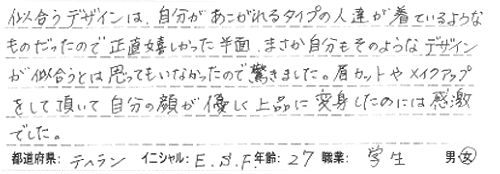 似合うデザインは、自分があこがれるタイプの人達が着ているような
ものだったので正直嬉しかった半面、まさか自分もそのようなデザイン
が似合うとは思ってもいなかったので驚きました。眉カットやメイクアップ
をして頂いて自分の顔が優しく上品に変身したのには感激
でした。
都道府県: テヘラン イニシャル: E.S.F. 年齢: 27 職業: 学生 男・女